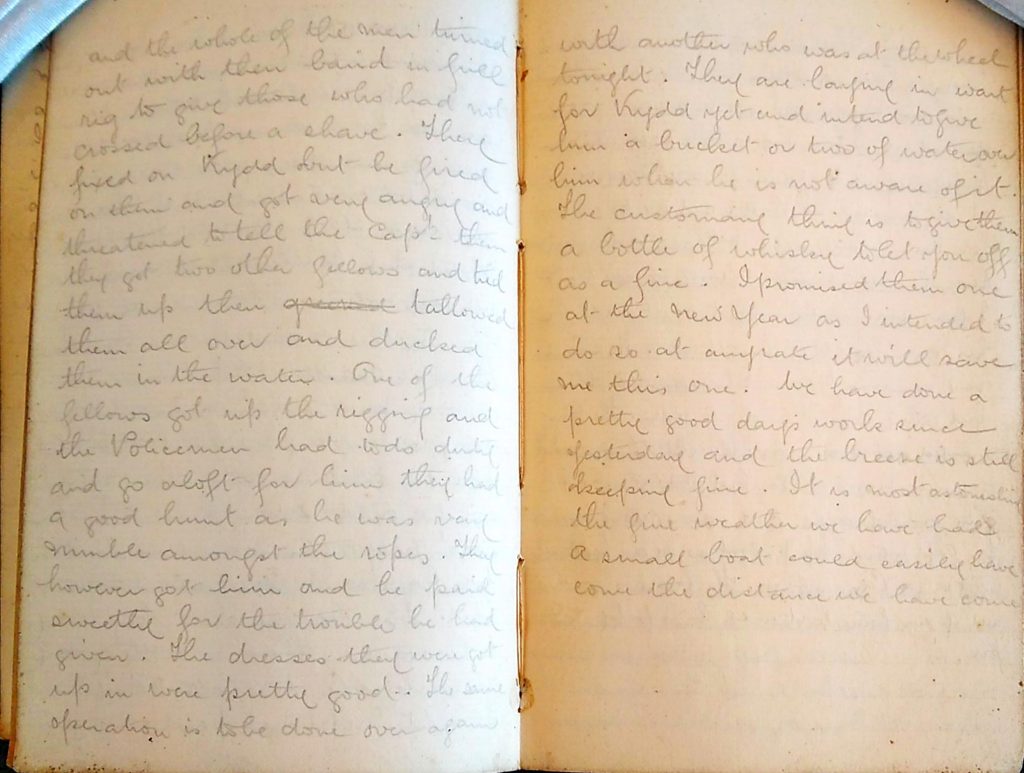 and the whole of the men turned
out with then band in full
rig to give those who had not
crossed before a shave. They
fixed on Kydd but he fired
on them and got very angry and
threatened to tell the Capt then
they got two other fellows and tied
them up then greased tallowed
them all over and ducked
them in the water. One of the
fellows got up the rigging and
the Policemen had to do duty
and go aloft for him they had
a good hunt as he was very
nimble amongst the ropes. They
however got him and he paid
sweetly for the trouble he had
given. The dresses they were got
up in were pretty good. The same
operation is to be done over again
with another who was at the wheel
tonight. They are laying in wait
for Kydd yet and intend to give
him a bucket or two of water over
him when he is not aware of it.
The customary thing is to give them
a bottle of whisky to let you off
as a fine. I promised them one
at the New Year as I intended to
do so at anyrate it will save
me this one. We have done a
pretty good days work since
yesterday and the breeze is still
keeping fine. It is most astonishing
the fine weather we have had.
A small boat could easily have
come the distance we have come